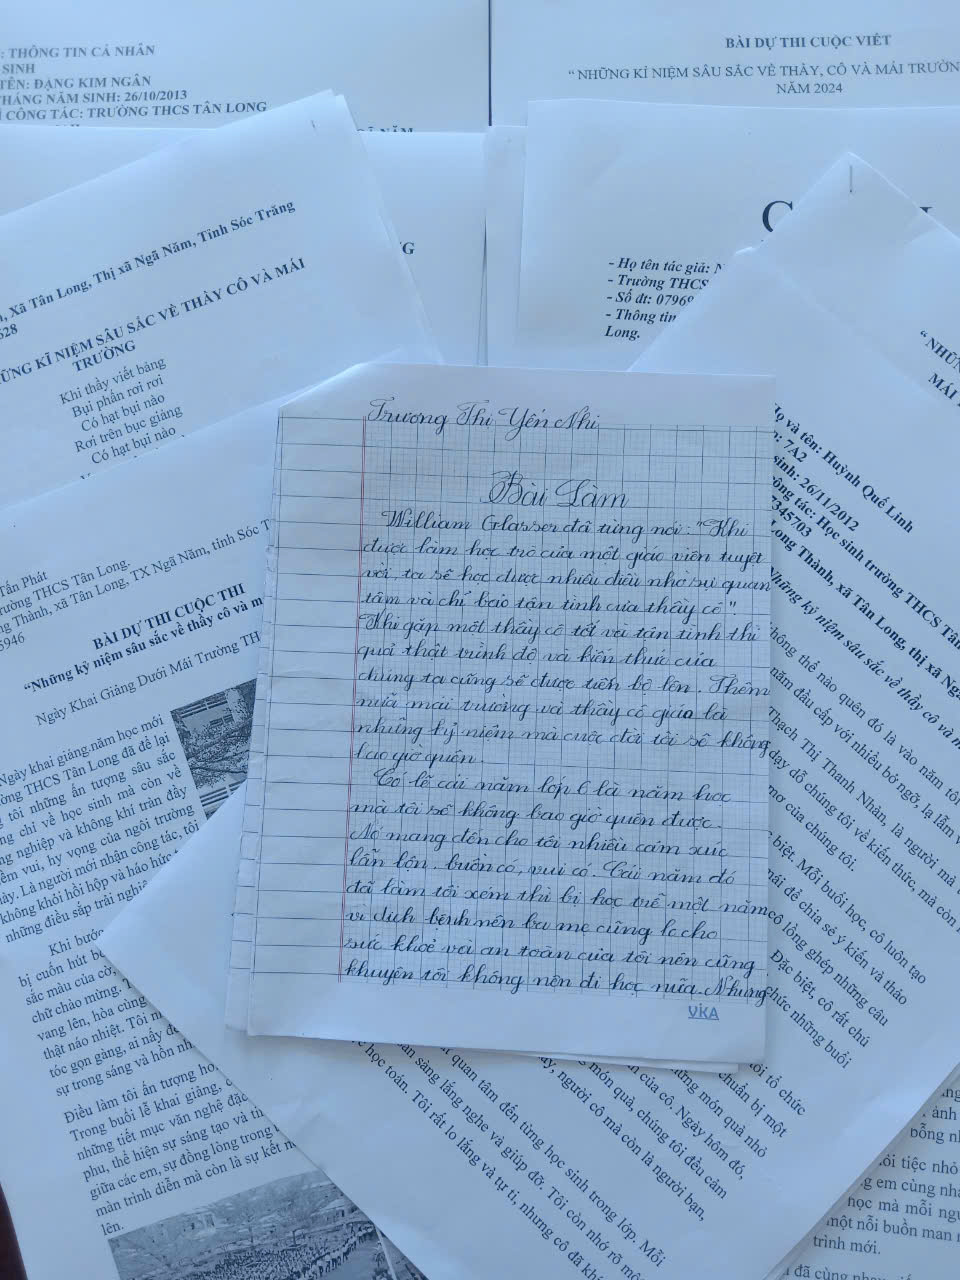 : THÔNG TIN CÁ NHÂN
SINH
TÊN: ĐẶNG KIM NGÂN
THÁNG NĂM SINH: 26/10/2013
CÔNG TÁC: TRƯỜNG THCS TÂN LONG
BÀI DỰ THI CUỘC VIẾT
“ NHỮNG KỈ NIỆM SÂU SẮC VỀ THẦY, CÔ VÀ MÁI TRƯỜN
NĂM 2024
- Họ tên tác giả: N
- Trường THCS
- Số đt: 0796
- Thông tin
Long.
, Xã Tân Long, Thị xã Ngã Năm, Tỉnh Sóc Trăng
628
ỮNG KĨ NIỆM SÂU SẮC VỀ THẦY CÔ VÀ MÁI
TRƯỜNG
Khi thầy viết bảng
Bụi phấn rơi rơi
Có hạt bụi nào
Rơi trên bục giảng
Có hạt bụi nào
Tấn Phát
rường THCS Tân Long.
g Thành, xã Tân Long, TX Ngã Năm, tỉnh Sóc T
5946
BÀI DỰ THI CUỘC THI
“Những kỷ niệm sâu sắc về thầy cô và m
Ngày Khai Giảng Dưới Mái Trường TH
Ngày khai giảng năm học mới
ường THCS Tân Long đã để lại
g tôi những ấn tượng sâu sắc
g chỉ về học sinh mà còn về
ng nghiệp và không khí tràn đầy
ềm vui, hy vọng của ngôi trường
ày. Là người mới nhận công tác, tôi
không khỏi hồi hộp và háo hức
những điều sắp trải nghiệ
Khi bước
bị cuốn hút b
sắc màu của cờ,
chữ chào mừng,
vang lên, hòa cùng
thật náo nhiệt. Tôi n
tóc gọn gàng, ai nấy đ
sự trong sáng và hồn nh
Điều làm tôi ấn tượng hơ
Trong buổi lễ khai giảng,
những tiết mục văn nghệ đặc
phu, thể hiện sự sáng tạo và ti
giữa các em, sự đồng lòng trong
màn trình diễn mà còn là sự kết n
lên.
Trương Thi Yến Nhi
Bài Làm
William Glasser đã từng nói : "Khi
được làm học trò của một giáo viên tuyệt
vời, ta sẽ học được nhiều điều nhờ sự quan
tâm và chỉ bảo tận tình của thầy cô".
Khi gặp một thầy cô tốt và tận tình thì
quả thật trình độ và kiến thức của
chúng ta cũng sẽ được tiến bộ lên. Thêm
nữa mái trường và thầy cô giáo là
những kỷ niệm mà cuộc đời tôi sẽ không
bao giờ quên.
Có lẽ cái năm lớp 6 là năm học
mà tôi sẽ không bao giờ quên được.
Nó mang đến cho tôi nhiều cảm xúc
lẫn lộn, buồn có, vui có. Cái năm đó
đã làm tôi xém thì bị học trễ một năm
vì dịch bệnh nên ba mẹ cũng lo cho
sức khoẻ và an toàn của tôi nên cũng
khuyên tôi không nên đi học nữa. Nhưng
VIKA
“ NHỮN
MÁI T
Họ và tên: Huỳnh Quế Linh
: 7A2
sinh: 26/11/2012
công tác: Học sinh trường THCS Tân
7345703
Long Thành, xã Tân Long, thị xã Ng
Những kỷ niệm sâu sắc về thầy cô và m
hông thể nào quên đó là vào năm tôi
năm đầu cấp với nhiều bỡ ngỡ, lạ lẫm v
Thạch Thị Thanh Nhàn, là người mà
dạy dỗ chúng tôi về kiến thức, mà còn
mơ của chúng tôi.
biệt. Mỗi buổi học, cô luôn tạo
mái để chia sẻ ý kiến và thảo
cô lồng ghép những câu
Đặc biệt, cô rất chú
chức những buổi
tôi tổ chức
chuẩn bị một
những món quà nhỏ
của cô. Ngày hôm đó,
món quà, chúng tôi đều cảm
y, người cô mà còn là người bạn,
quan tâm đến từng học sinh trong lớp. Mỗi
sàng lắng nghe và giúp đỡ. Tôi còn nhớ rõ mộ
học toán. Tôi rất lo lắng và tự ti, nhưng cô đã kh
tiệc nhỏ
g em cùng nha
học mà mỗi ngư
một nỗi buồn man
trình mới.